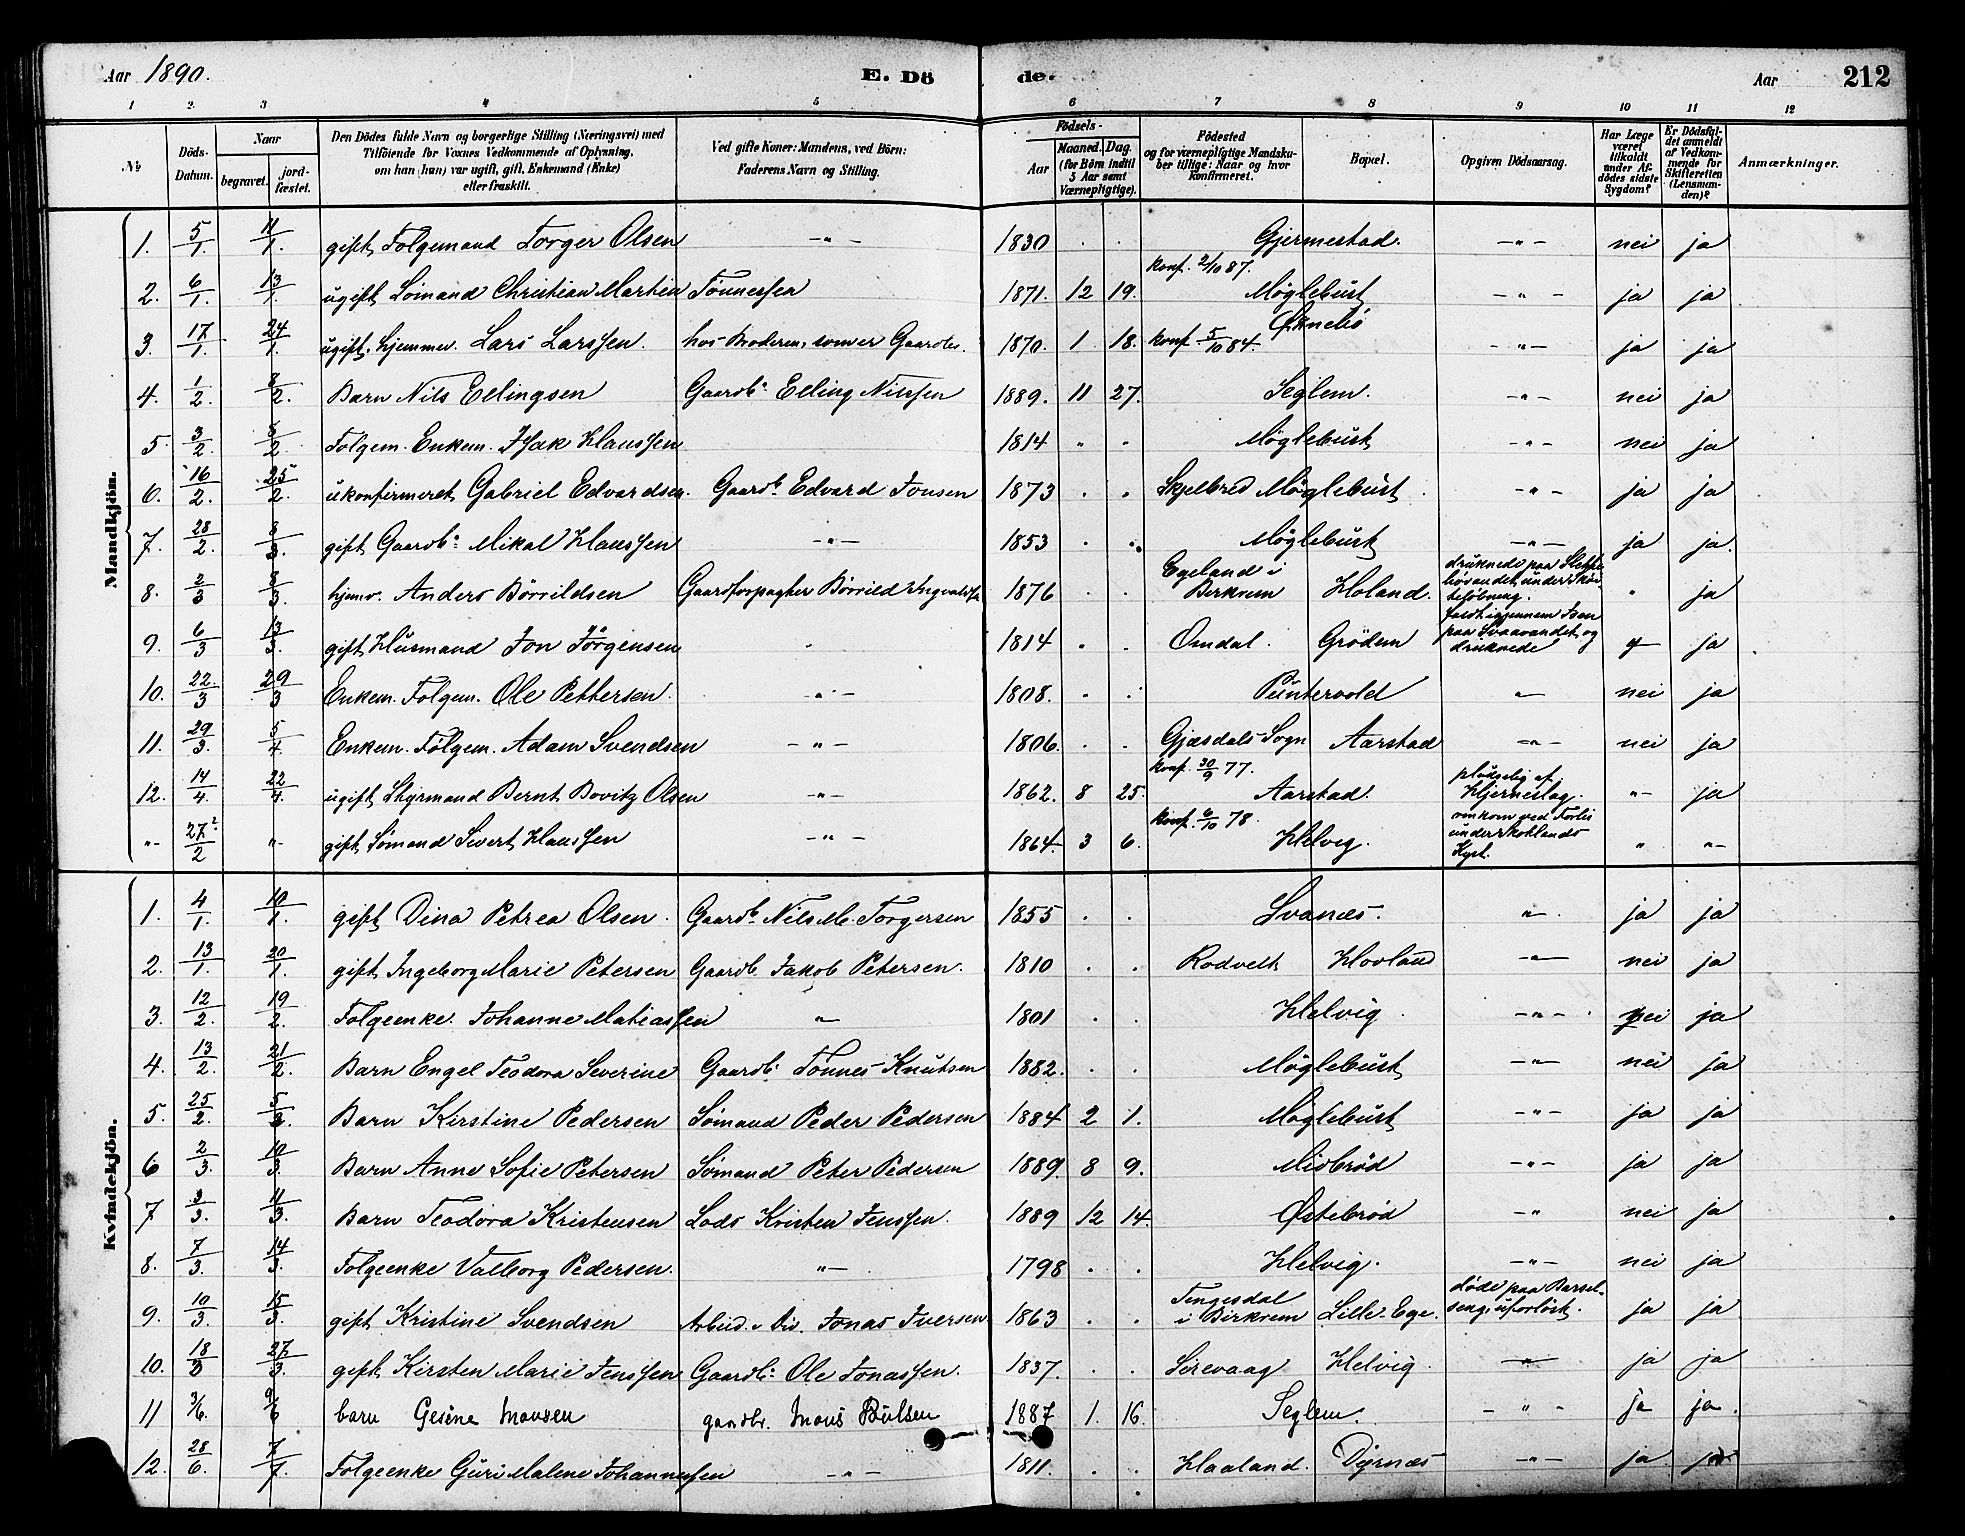 Aar 1890. E. Dö de. Aar 212
1 2. 3 4 5 6 7 8 9 10 11 12
No Döds-Datum. Naar begravet. jord-fæstet. Den Dödes fulde Navn og borgerlige Stilling (Næringsvei) med Tilföiende for Voxnes Vedkommende af Oplysning, om han (hun) var ugift, gift, Enkemand (Enke) eller fraskilt. Ved gifte Koner: Mandens, ved Börn: Faderens Navn og Stilling. Födsels- Aar Maaned. Dag. (for Börn indtil 5 Aar samt Værnepligtige). Födested og for værnepligtige Mandskuber tillige: Naar og hvor konfirmeret. Bopæl. Opgiven Dödsaarsag. Har Læge været tilkaldt under Afdödes sidste Sygdom? Er Dödsfaldet anmeldt af Vedkommende for Skifteretten (Lensmanden)? Anmærkninger.
Mandkjön.
1. 5/1. 11/1. gift Folgemand Torger Olsen -"- 1830 . . Gjermestad. -"- nei ja
2. 6/1. 13/1. ugift Sömand Christian Martin Tönnessen 1871. 12 19. konf. 2/10 87. Möglebust -"- ja ja
3. 17/1. 24/1. ugift. hjemmev. Lars Larssen. hos Moderen, som er Gaardbr. 1870. 1 18. konf 5/10 84. -"- ja ja
4. 1/2. 8/2. Barn Nils Ellingsen Gaardb: Elling Nilssen 1889. 11 27. Seglem. -"- nei ja
5 3/2. 8/2 Folgem. Enkem. Isak Klaussen 1814 " " Möglebust -"- nei ja
6. 16/2. 25/2. ukonfirmeret Gabriel Edvardsen. Gaardb. Edvard Jonsen 1873 . . Skjelbred Möglebust -"- ja ja
7. 28/2. 8/3. gift Gaardb: Mikal Klaussen -"- 1853 . . Möglebust -"- ja ja.
8. 2/3 8/3. hjemv. Anders Börrildsen Gaardforpagter Börrild 1876 . . Egeland i Birkrem Holand. druknede paa under " ja
9. 6/3 13/3. gift Husmand Jon Jörgensen 1814 . . Omdal. Grödem faldt igjennem Isen paa Svaavandet og druknede " ja
10. 22./3 29/3 Enkem. Folgem. Ole Pettersen. -"- 1808. . . Puntervold " nei ja
11. 29/3. 5/4 Enkem. Fölgem. Adam Svendsen -"- 1806. . . Gjæsdals Sogn Aarstad -"- nei ja
12. 14/4. 22/4. ugift Bernt Bovitz Olsen -"- 1862. 8 25. konf. 30/9 77. Aarstad. pludselig af Hjerneslag. "- ja
"- 27/2 "- gift Sömand Sivert Klaussen -"- 1864. 3 6. konf. 6/10 78. Helvig. omkom ved Forlis under Skotlands Kyst. " "-
Kvindekjön.
1. 4/1. 10/1. gift Dina Petrea Olsen. Gaardb. Nils M. Torgersen 1855 . . Svanæs. "- ja ja
2. 13/1. 20/1. gift Ingeborg Marie Petersen Gaardb. Jakob Petersen. 1810 . . Rodvelt Hovland "- nei ja
3. 12/2. 19/2. Folgeenke. Johanne Matiassen " 1801 . . Helvig. -"- nei ja
4. 13/2. 21/2. Barn Engel Teodora Severine Gaardb: Tönnes Knutsen 1882. . . Möglebust -"- nei ja
5. 25/2. 5/3. Barn Kirstine Pedersen Sömand Peder Pedersen 1884 2 1. Möglebust -"- ja ja
6 2/3. 10/3. Barn Anne Sofie Petersen Sömand Peter Pedersen 1889. 8 9. Midbröd -"- ja ja
7 3/3. 11/3. Barn Teodora Kristensen Lods Kristen Jenssen. 1889 12 14 Östebröd -" nei ja
8. 7/3. 14/3. Folgeenke Valborg Pedersen. "- 1798 . . Helvig. -"- nei ja
9. 10/3. 15/3. gift Kristine Svendsen Arbeid. Jonas Iversen 1863 . . Tengesdal i Birkrem Lille-Ege. döde paa Barselseng, uforlöst. ja ja
10. 18/3 27/3. gift Kirsten Marie Jenssen Gaardb: Ole Jonassen. 1837. . . Sirevaag Helvig. "- ja ja
11 3/6. 9/6 barn Gesine Monsen gaardbr. Mons 1887 1. 16. Seglem. - " - ja ja.
12. 28/6. 7/7. Folgeenke Guri Malene Johannessen -"- 1811. . . Haaland. Dyrnæs -"- ja ja